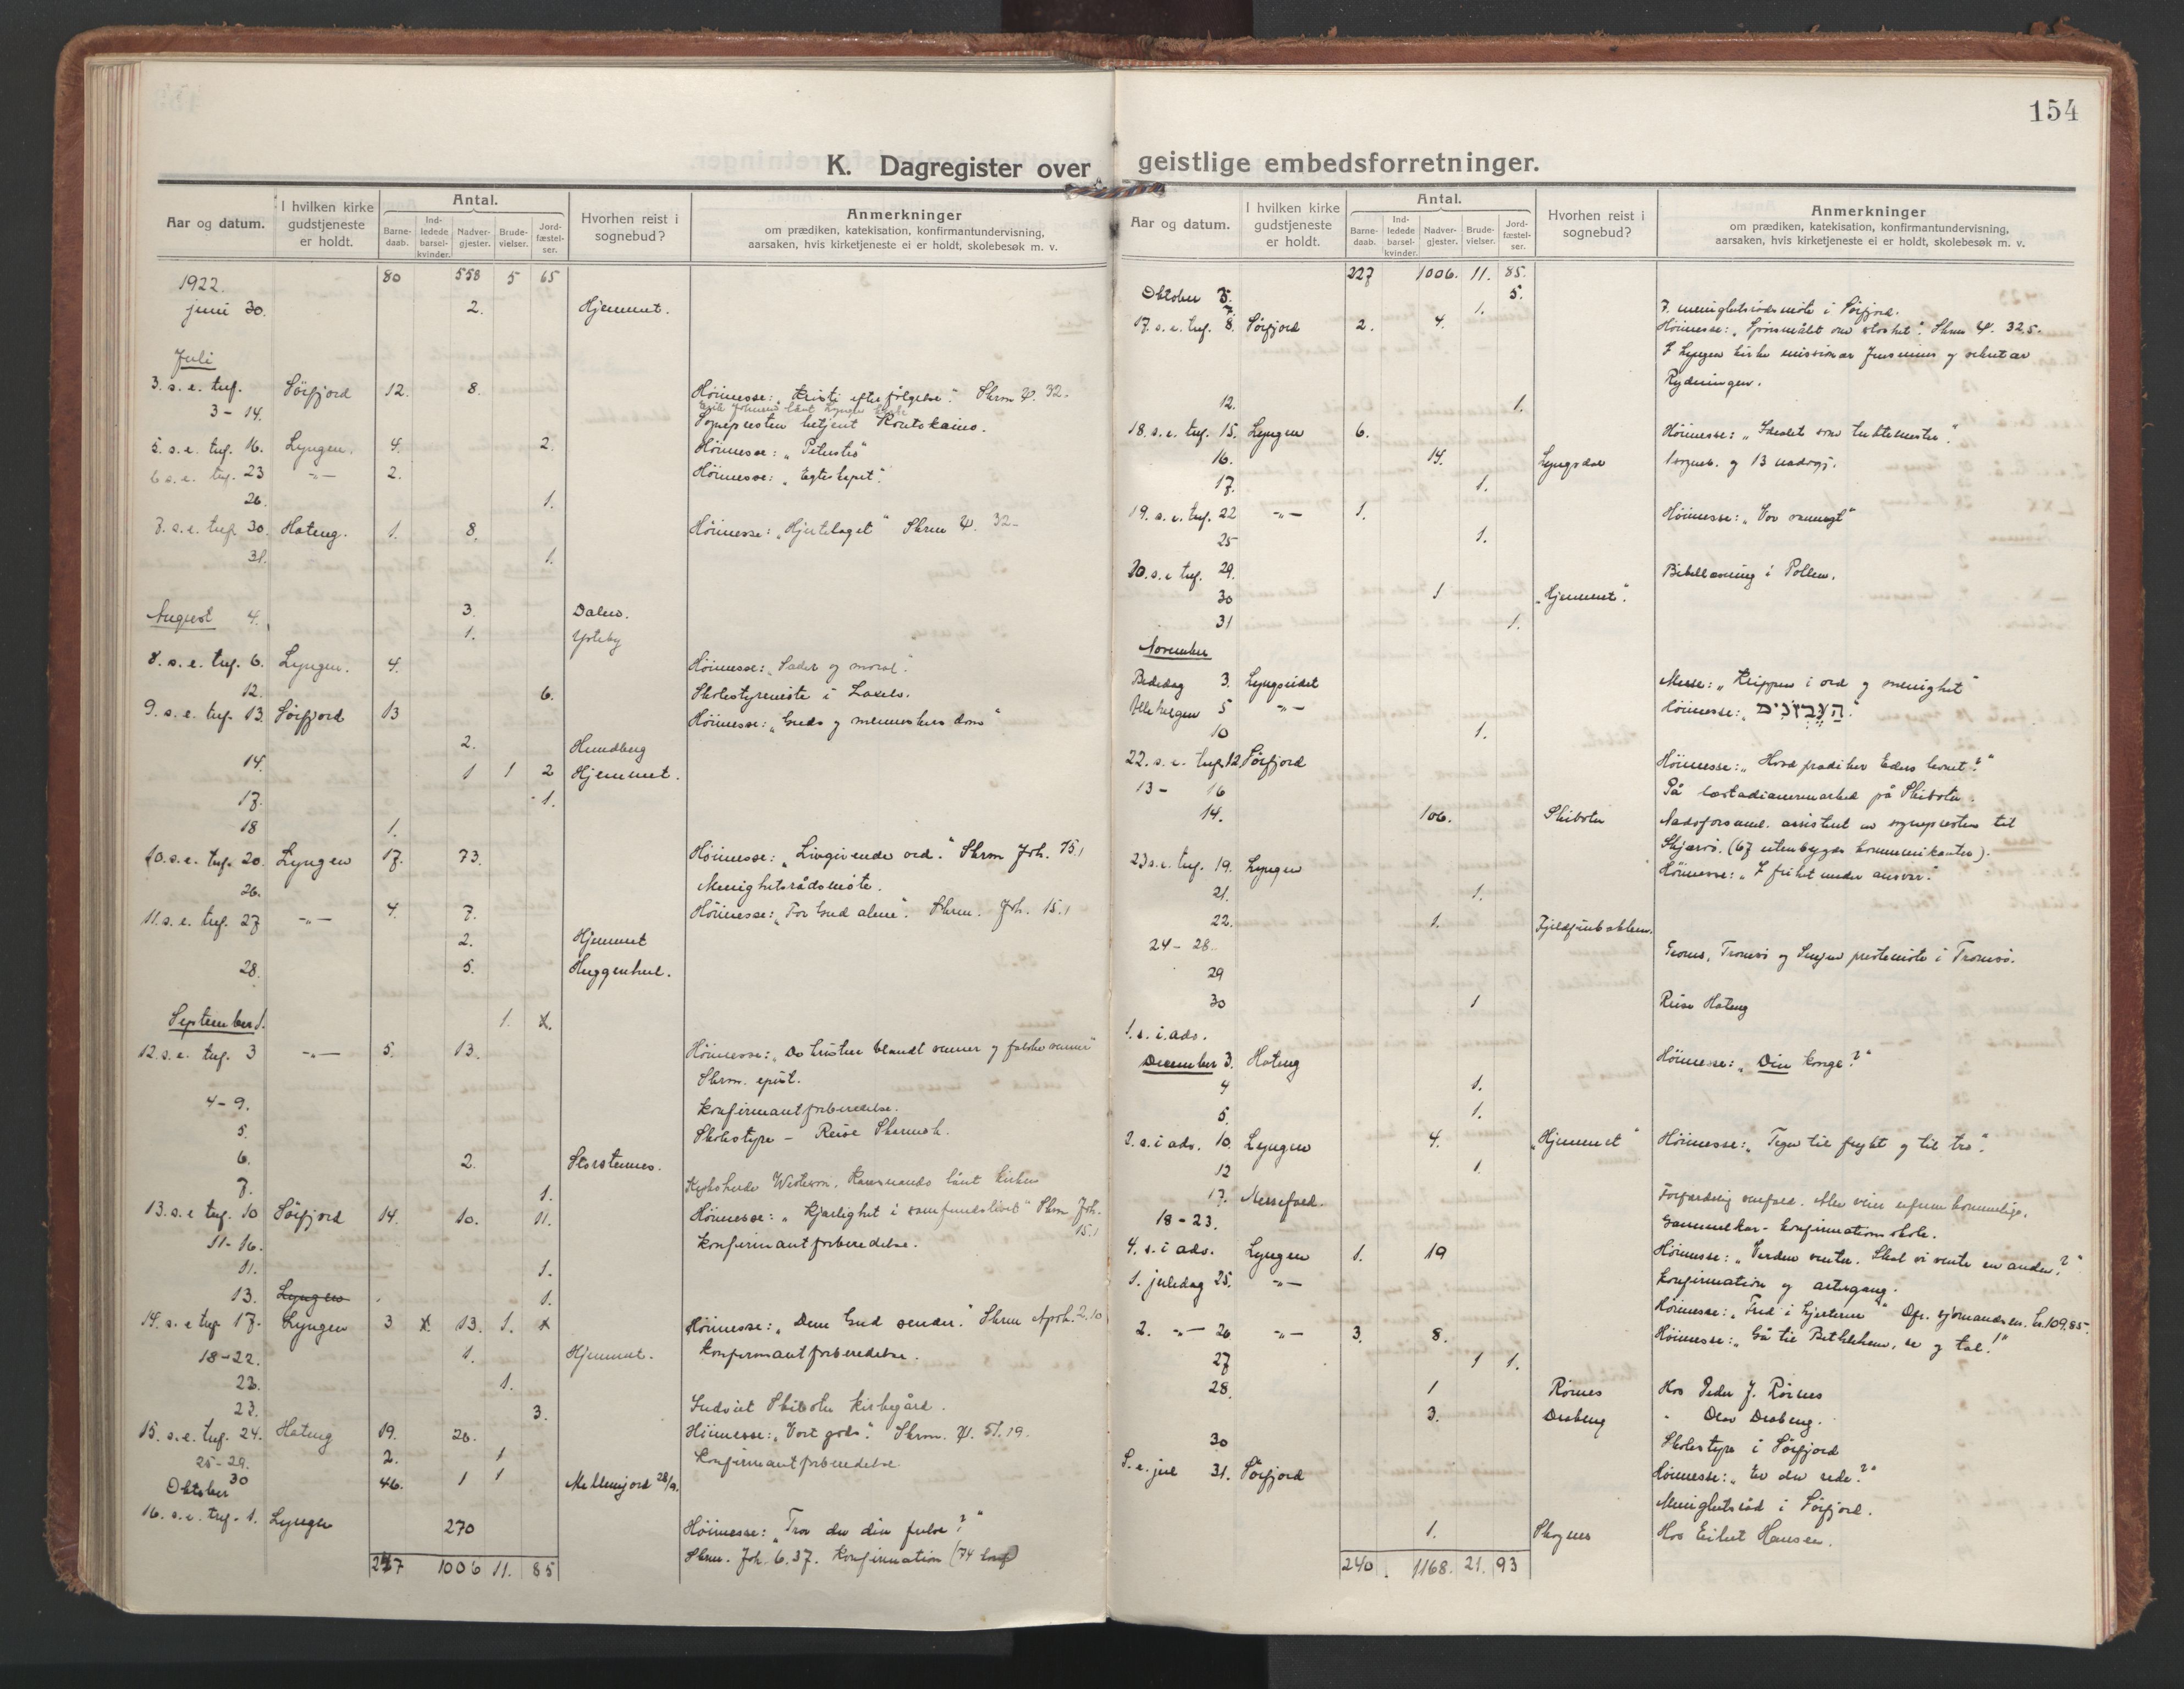 154
K. Dagregister over geistlige embedsforretninger.
Aar og datum. I hvilken kirke gudstjeneste er holdt. Antal. Barne-daab. Ind-ledede barsel-kvinder. Nadver-gjester. Brude-vielser. Jord-fæstel-ser. Hvorhen reist i sognebud? Anmerkninger
om prædiken, katekisation, konfirmantundervisning,
aarsaken, hvis kirketjeneste ei er holdt, skolebesøk m. v.
1922. 80 558 5 65
juni 30. 2. Hjemmet.
Juli
3. s. e. tref. Sörfjord 12. 8. Höimesse: "Kristi efterfölgelse". Skrm ψ. 32.
3-14. Sognepresten betjent Kautokeino.
5. s. e. tref. 16. Lyngen. 4. 2. Höimesse: "
6 s. e. tref. 23 -"- 2. Höimesse: "Egteskapet".
26. 1.
7. s. e. tref. 30. Hateng. 1. 8. Höimesse: "Hjertelaget" Skrm ψ. 32-
31. 1.
August 4. 3. Dalen.
1. Ysteby
8. s. e. tref. 6. Lyngen. 4. Höimesse: "Seder og moral".
12. 6. Skolestyremöte i Lakselv.
9. s. e. tref. 13. Sörfjord 13 Höimesse: "Guds og menneskers dom"
2. Hundberg
14. 1 1 2 Hjemmet.
17. 1.
18 1.
10. s. e. tref. 20. Lyngen 17. 73. Höimesse: "Livgivende ord." Skrm Joh. 15.1
26. Menighetsrådsmöte.
11. s. e. tref. 27 -"- 4. 7. Höimesse: "For Gud alene". Skrm. Joh. 15.1
2. Hjemmet
28. 5. Huggenhul.
September 1. 1. X.
12. s. e. tref. 3 -"- 5. 13. Höimesse: "De kristne blandt venner og falske venner"
Skrm. epist.
4-9. Konfirmantforberedelse.
5. Skolestyre - Reise Skarmoh.
6. 2. Storstennes.
7. 1. Karesuando lånt kirken
13. s. e. tref. 10 Sörfjord 14. 10. 11. Höimesse: "Kjærlighet i samfundslivet" Skrm Joh. 15.1
11-16. Konfirmantforberedelse.
11. 1.
13. Lyngen 1.
14. s. e. tref 17. Lyngen 3 X. 13. 1. X Höimesse: "Dem Gud sender." Skrm Apok. 2.10
18-22. 1. Hjemmet. Konfirmantforberedelse.
23. 1.
23. 3. Indviet Skibotn kirkegård.
15. s. e. tref. 24. Hateng 19. 26. Höimesse: "Vort gods". Skrm. ψ. 51.19.
25-29. 2. 1 Konfirmantforberedelse.
30 46. 1 1 28/9.
Oktober
16. s. e. tref. 1. Lyngen 270 Höimesse: "Tror du din frelser?"
Skrm. Joh. 6.37. Konfirmation (74 konf)
227 1006 11. 85
Aar og datum. I hvilken kirke gudstjeneste er holdt. Antal. Barne-daab. Ind-ledede barsel-kvinder. Nadver-gjester. Brude-vielser. Jord-fæstel-ser. Hvorhen reist i sognebud? Anmerkninger
om prædiken, katekisation, konfirmantundervisning,
aarsaken, hvis kirketjeneste ei er holdt, skolebesøk m. v.
227 1006. 11. 85.
Oktober 3. 5.
7. 1. menighetsrådsmöte i Sörfjord.
17. s. e. tref. 8. Sörfjord 2. 4. Höimesse: "Spörsmålet om storhet". Skrm ψ. 32.5.
I Lyngen kirke missionær og sekretær
Rydningen.
12. 1.
18. s. e. tref. 15. Lyngen 6. Höimesse: "Idealet som tuktemester".
16. 14. Lyngsdal 1 sogneb. og 13 nadvgj.
17. 1.
19. s. e. tref. 22 -"- 1. Höimesse: "Vor
25 1.
20. s. e tref. 29. Bibellæsning i Pollen.
30 1 "Hjemmet".
31 1.
November
Bededag 3. Lyngseidet Messe: "Klippen i ord og menighet"
Allehelgen 5 -"- Höimesse:
10 1.
22. s. e. tref. 12. Sörfjord Höimesse: "Hvad prædiker Eders levnet?"
13-16 På læstadianermarked på Skibotn.
14. 106. Skibotn Nadvforsaml. assistert av sognepresten til
Skjervö. (67 utenbygds kommunikanter).
23 s. e. tref. 19. Lyngen Höimesse: "I frihet under ansvar."
21. 1.
22. 1.
24-28. Troms, Tromsö og Senjens prestemöte i Tromsö.
29
30 1 Reise Hateng
1. s. i. adv.
December 3. Hateng Höimesse: "Din konge?"
4 1.
5. 1.
2. s. i adv. 10. Lyngen 4. "Hjemmet" Höimesse: "Tegn til frykt og til tro".
12 1.
17. Messefald. Forfærdelig snefald. Alle veier ufremkommelige.
18-23. Sammelkar - Konfirmationsskole.
4. s. i adv. Lyngen 1. 19 Höimesse: "Verden venter. Skal vi vente en anden?"
Konfirmation og altergang.
1. juledag 25. -"- Höimesse: "Fred i hjerterne" Ofr. sjömandsm. kr. 109.85.
2. -"- 26 -"- 3. 8. Höimesse: "Gå til Bethlehem, se og tal!"
27 1 1.
28. 1 Rörnes Hos Peder J. Rörnes
3. Draberg " Draberg.
30 Skolestyre i Sörfjord
S. e. jul 31. Sörfjord Höimesse: "Er du rede?"
Menighetsråd i Sörfjord.
1. Skognes Hos Eilert Hansen.
240 1168. 21. 93